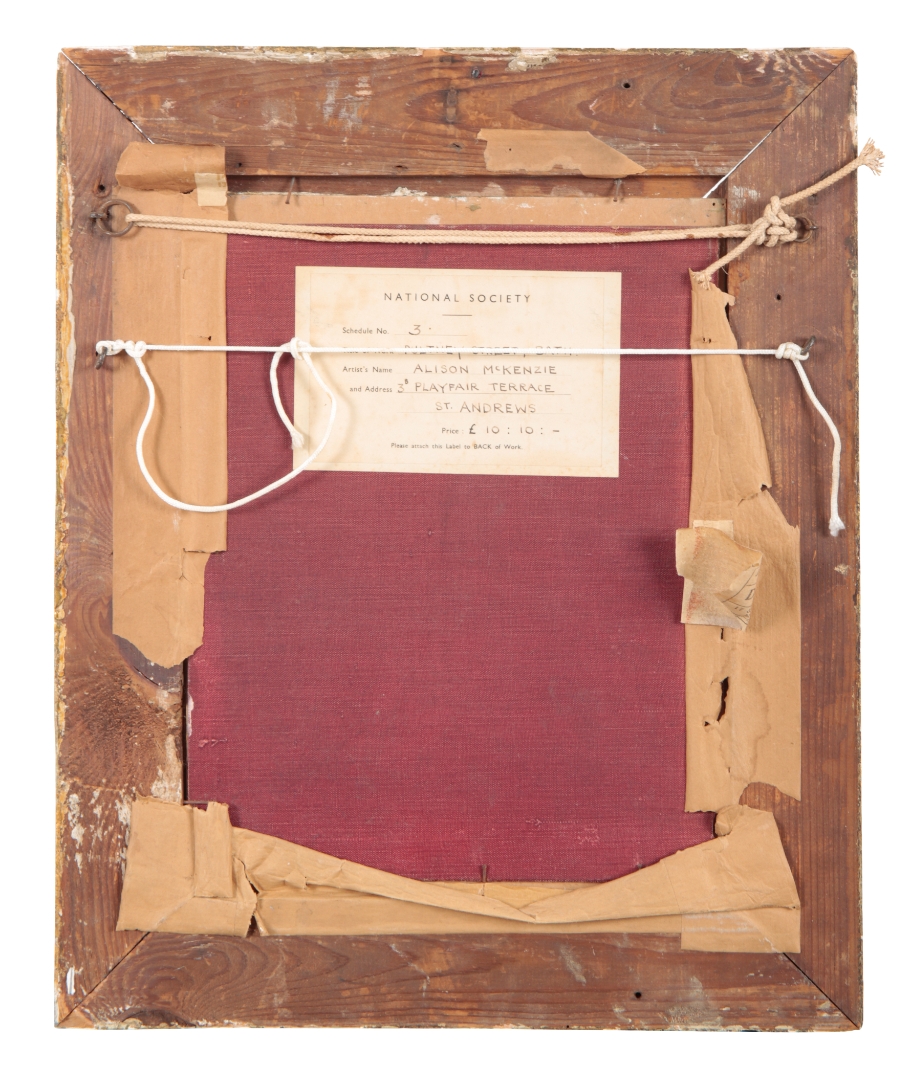 NATIONAL SOCIETY
Schedule No. 3.
PULTNEY STREET, BATH.
Artist's Name ALISON McKENZIE
and Address 3ᴮ PLAYFAIR TERRACE
ST. ANDREWS
Price: £ 10 : 10 : -
Please attach this Label to BACK of Work.